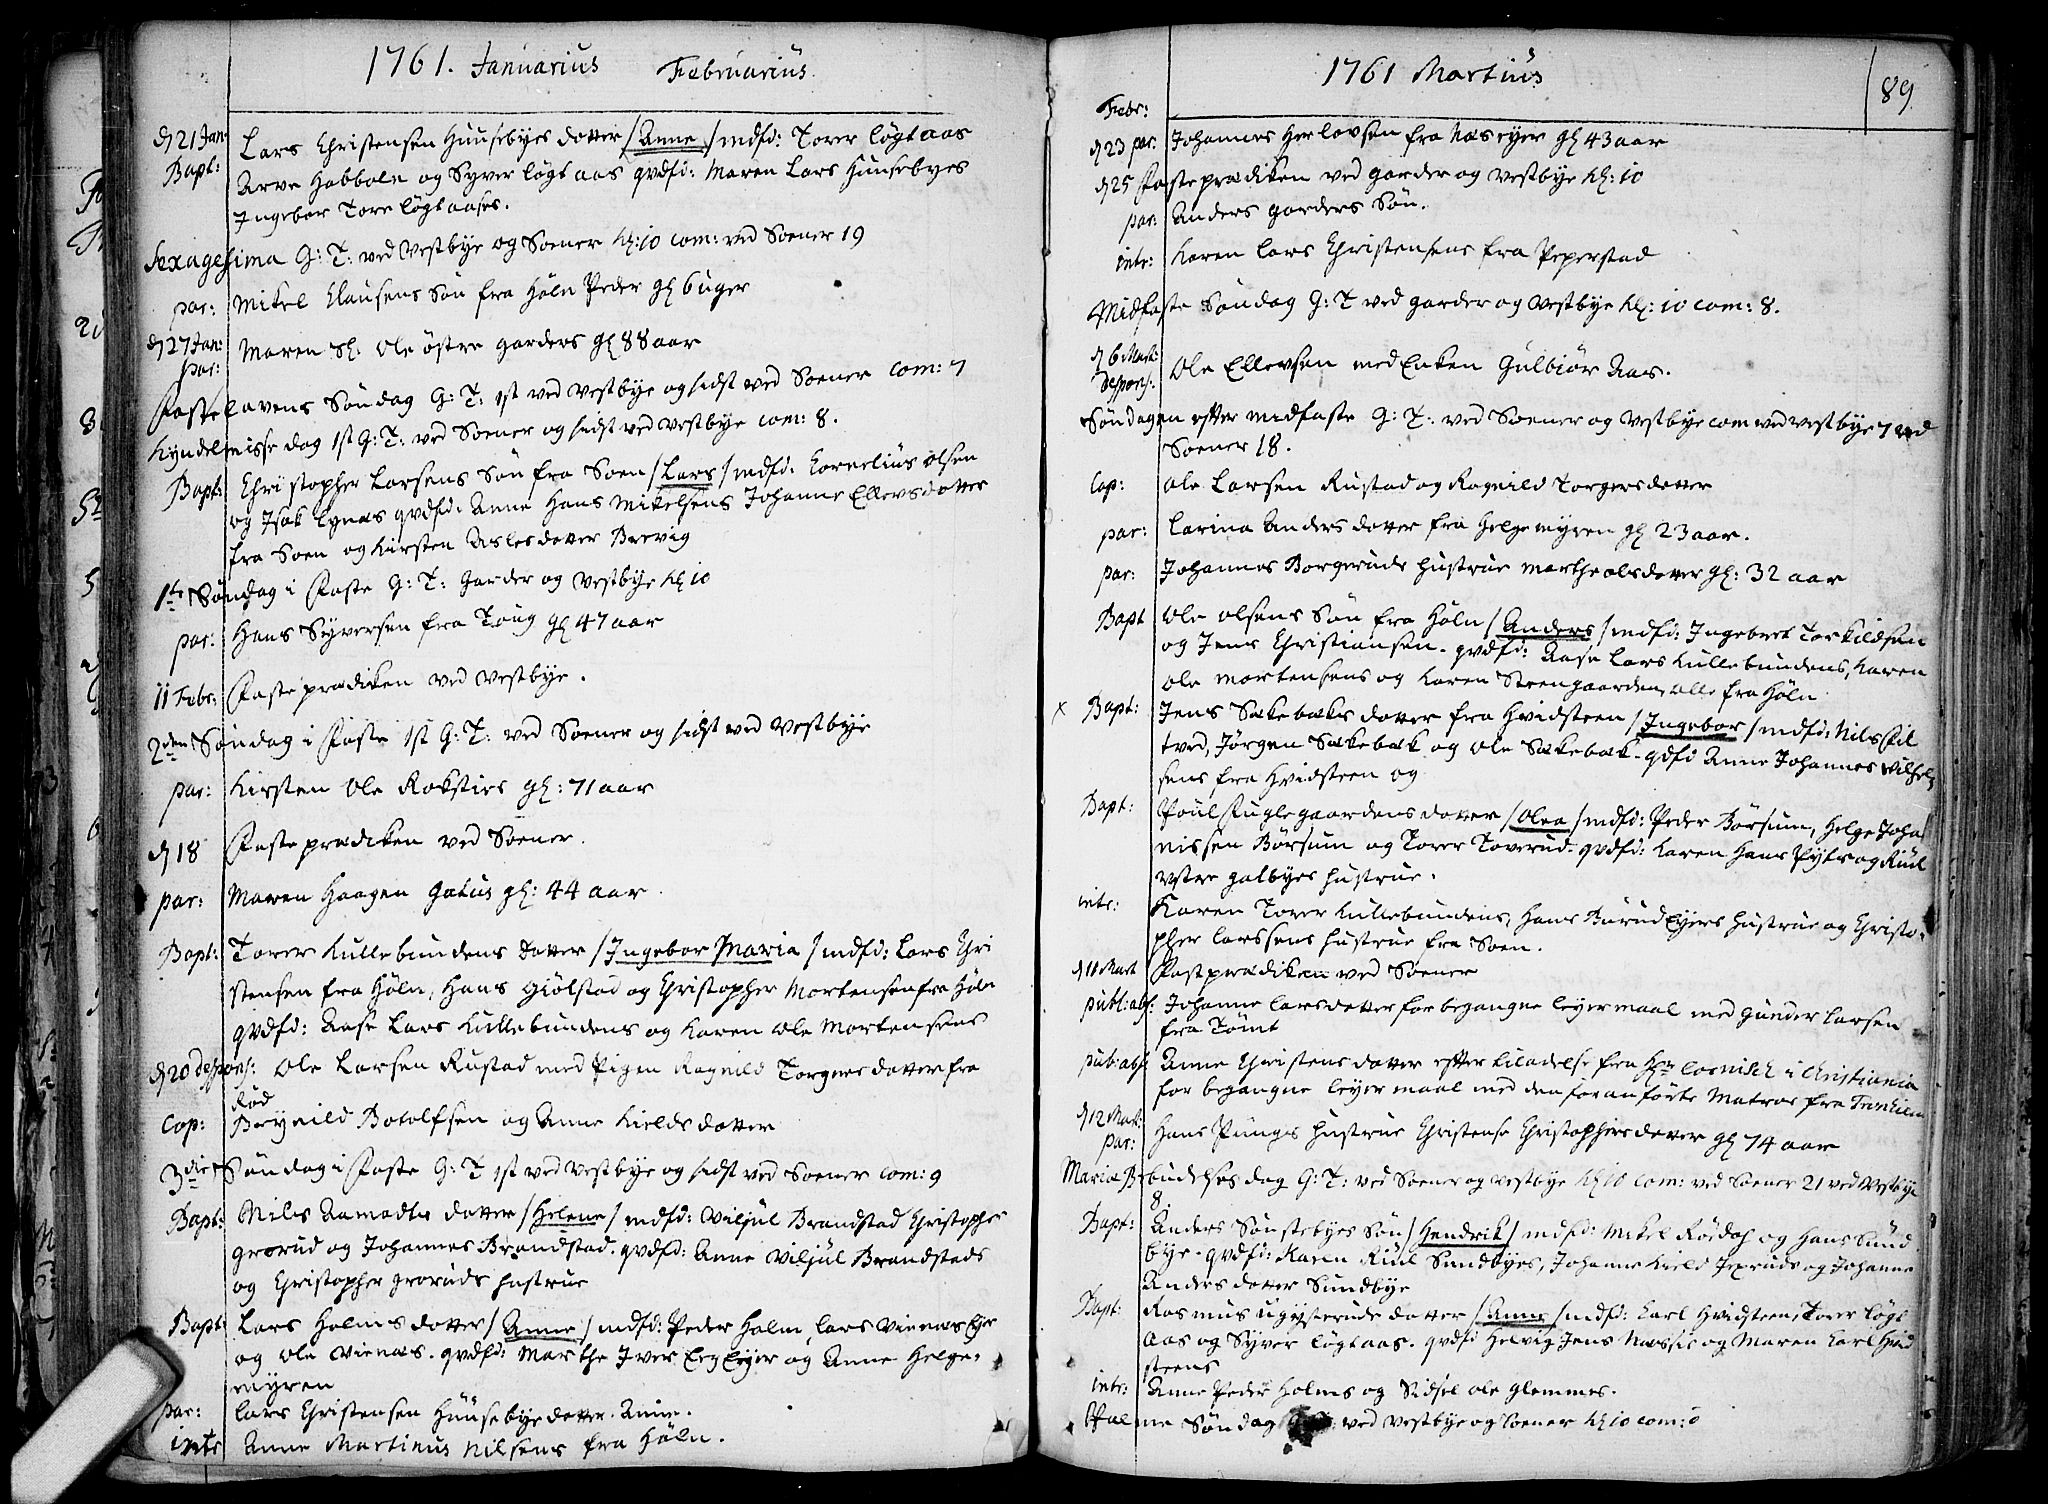 1761. Januarius Februarius
d 21 Jan: Bapt: Lars Christensen Huusebyes dotter /Anne/ mdfd: Torer Løgtaas
Arve Habboln og Syver Løgtaas qvdfd: Maren Lars Huusebyes
Ingebor Tore Løgtaases.
Sexagesima G: T: ved Vestbye og Soener kl: 10 com: ved Soener 19
par: Mikel Clausens Søn fra Høln Peder gl 6 uger
d 27 Jan: par: Maren Sl: Ole østre garders gl 88 aar
Fastelavens Søndag G: T: 1st ved Vestbye og sidst ved Soener com: 7
Kyndelmisse dag 1st G: T: ved Soener og sidst ved Vestbye com: 8.
Bapt: Christopher Larsens Søn fra Soen /Lars/ mdfd: Cornelius Olsen
og Isak Lynæs qvdfd: Anne Hans Mikelsens Johanne Ellevsdotter
fra Soen og Kirsten Aslesdotter Brevig
1te Søndag i Faste G: T: Garder og Vestbye kl 10
par: Hans Syversen fra Toug gl 47 aar
11 Febr: Fasteprædiken ved Vestbye.
2den Søndag i Faste 1st G: T: ved Soener og sidst ved Vestbye
par: Kirsten Ole Roksties gl: 71 aar
d 18 Fasteprædiken ved Soener.
par: Maren Haagen Galus gl: 44 aar.
Bapt: Torer Kullebundens dotter /Ingebor Maria/ mdfd: Lars Chri
stensen fra Høln, Hans Giølstad og Christopher Mortensen fra Høln
qvdfd: Aase Lars Kullebundens og Karen Ole Mortensens
d 20 Despons: Ole Larsen Rustad med Pigen Ragnild Torgersdotter fra
Rød
Cop: Brynild Botolfsen og Anne Kieldsdotter
3die Søndag i Faste G: T 1st ved Vestbye og sidst ved Soener com: 9
Bapt: Niels Aamodts dotter /Helene/ mdfd: Viljul Brandstad Christopher
Grorud og Johannes Brandstad. qvdfd: Anne Viljul Brandstads
og Christopher Groruds hustrue
Bapt: Lars Holms dotter /Anne/ mdfd: Peder Holm, Lars Vienæs Eyer
og Ole Vienæs. qvdfd: Marthe Iver Eeg Eyer og Anne Helge-
myren
par: Lars Christensen Huusebye dotter Anne.
intr Anne Martinus Nilsens fra Høln.
1761 Martius
89
Febr:
d 23 par: Johannes Herlovsen fra Næs eyer gl 43 aar
d 25 Fasteprædiken ved Garder og Vestbye kl: 10
par: Anders Garders Søn.
intr: Karen Lars Christensens fra Peperstad
Midfaste Søndag G: T ved Garder og Vestbye kl: 10 com: 8.
d 6 Mart: Despons: Ole Ellevsen med Enken Gulbiør Aas.
Søndagen efter Midfaste G: T: ved Soener og Vestbye com ved Vestbye 7 ved
Soener 18.
Cop: Ole Larsen Rustad og Ragnild Torgersdotter
par: Larina Andersdotter fra Helgemyren gl 23 aar.
par: Johannes Borgeruds hustrue Marthe Olsdotter gl: 32 aar
Bapt Ole Olsens Søn fra Høln /Anders/ mdfd: Ingebret Torkildsen
og Jens Christiansen. qvdfd: Aase Lars Kullebundens, Karen
Ole Mortensens og Karen Steengaarden, alle fra Høln
x Bapt: Jens Sækebæks dotter fra Hvidsteen /Ingebor/ mdfd: Nils Fil
tved, Jørgen Sækebæk og Ole Sækebæk. qdfd Anne Johannes Vilhelm
sens fra Hvidsteen og
Bapt: Poul Fuglegaardens dotter /Olea/ mdfd: Peder Børsum, Helge Joha
nissen Børsum og Torer Toverud. qvdfd: Karen Hans Pyts og Riul
østre Galbyes hustrue.
intr: Karen Torer Kullebundens, Hans Burud Eyers hustrue og Christo-
pher Larssens hustrue fra Soen.
d 11 Mart Fasteprædiken ved Soener
publ: abs: Johanne Larsdotter for begangne leyermaal med Gunder Larsen
fra Tømt
pub: abs Anne Christensdotter efter tiladelse fra Hr i Christiania
for begangne leyermaal med den foranførte Matros fra
d 12 Mart: par: Hans Pungs hustrue Christense Christophersdotter gl 74 aar
Mariæ Bebudelses dag G: T: ved Soener og Vestbye kl 10 com: ved Soener 21 ved Vestbye
8.
Bapt: Anders Sønstebyes Søn /Hendrik/ mdfd: Mikel Rødah og Hans Sund
bye. qvdfd: Karen Riul Sundbyes, Johanne Kield Jexruds og Johanne
Andersdotter Sundbye
Bapt: Rasmus dotter /Anne/ mdfd: Carl Hvidsteen, Torer Løgt
aas og Syver Løgtaas. qvdfd Helvig Jens Næssie og Maren Carl Hvid
steens
intr: Anne Peder Holms og Sidsel Ole Glemmes.
Palme Søndag ved Vestbye og Soener kl 10 com: 0